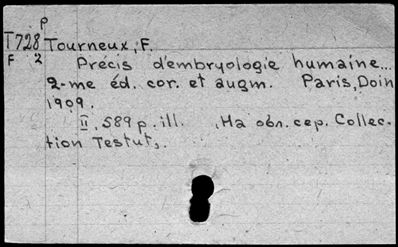 P
T728 Tourneux, F.
F 2 Précis d'embryologie humaine...
2-me éd. cor. et augm. Paris, Doin
1909.
II, 589 p. ill. На обл. сер. Collec-
tion Testut,.